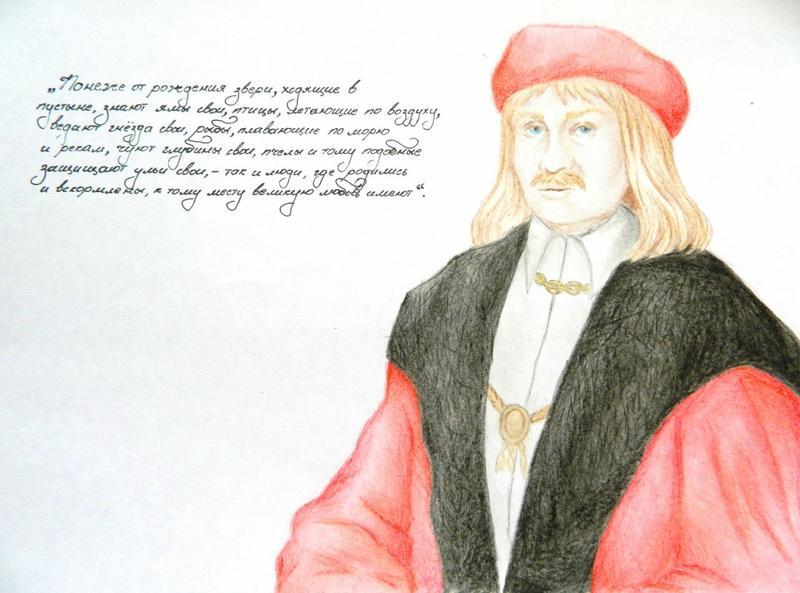 „Понеже от рождения звери, ходящие в
пустыне, знают ямы свои, птицы, летающие по воздуху,
ведают гнёзда свои, рыбы, плавающие по морю
и рекам, чуют глубины свои, пчелы и тому подобные
защищают ульи свои, – так и люди, где родились
и вскормлены, к тому месту великую любовь имеют“.